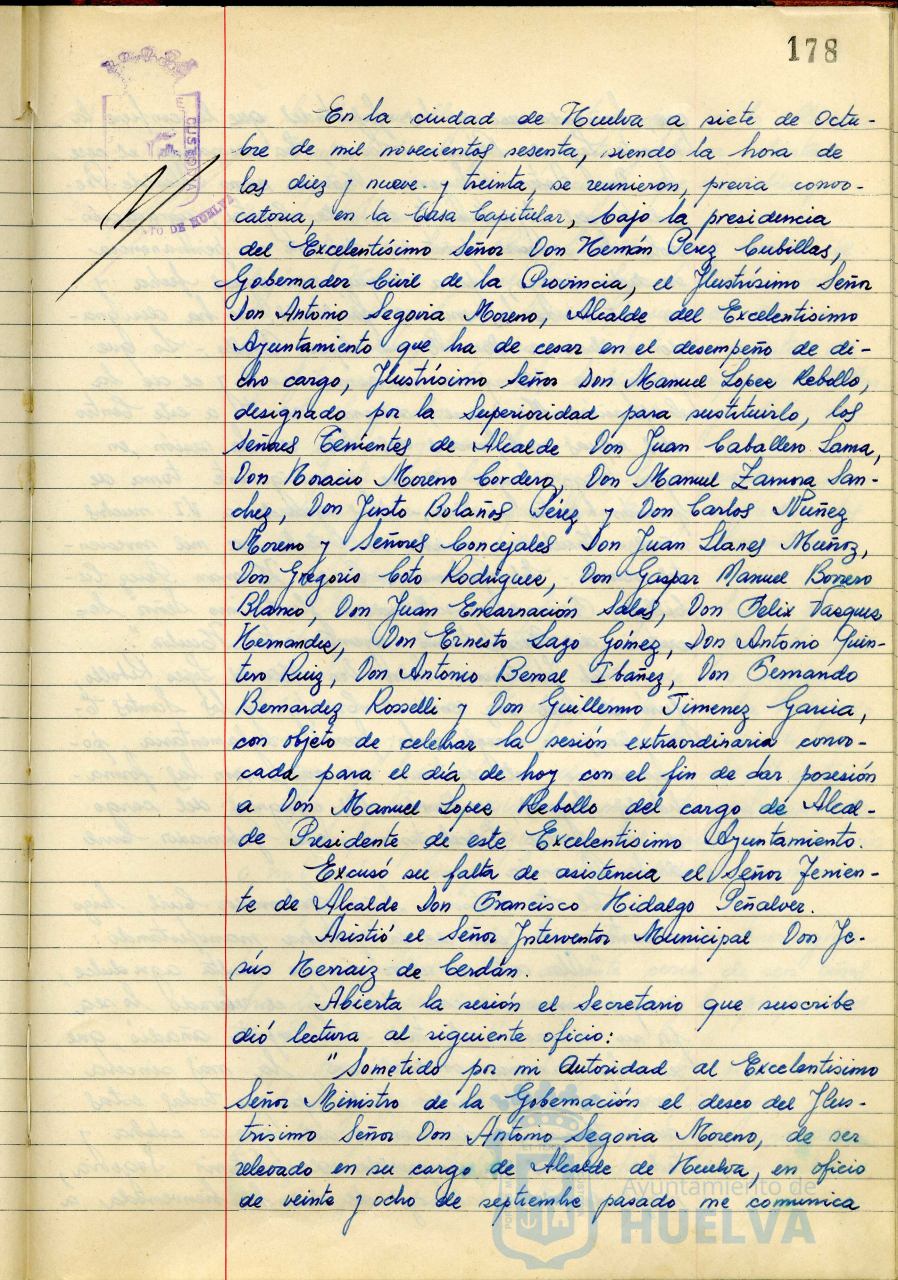 178
CUSTODIA
TO DE HUELVA
En la ciudad de Huelva a siete de Octu-
bre de mil novecientos sesenta, siendo la hora de
las diez y nueve y treinta, se reunieron, previa convo-
catoria, en la Casa Capitular, bajo la presidencia
del Excelentísimo Señor Don Hernán Pérez Cubillas,
Gobernador Civil de la Provincia, el Ilustrísimo Señor
Don Antonio Segovia Moreno, Alcalde del Excelentisimo
Ayuntamiento que ha de cesar en el desempeño de di-
cho cargo, Ilustrísimo Señor Don Manuel Lopez Rebollo,
designado por la Superioridad para sustituirlo, los
Señores Tenientes de Alcalde Don Juan Caballero Lama,
Don Horacio Moreno Cordero, Don Manuel Zamora San-
chez, Don Justo Bolaños Pérez y Don Carlos Núñez
Moreno y Señores Concejales Don Juan Llanes Muñoz,
Don Gregorio Coto Rodriguez, Don Gaspar Manuel Borrero
Blanco, Don Juan Encarnación Salas, Don Felix Vasquez
Hernandez, Don Ernesto Lazo Gómez, Don Antonio Quin-
tero Ruiz, Don Antonio Bernal Ibáñez, Don Fernando
Bernardez Rosselli y Don Guillermo Jimenez Garcia,
con objeto de celebrar la sesión extraordinaria convo-
cada para el día de hoy con el fin de dar posesión
a Don Manuel Lopez Rebollo del cargo de Alcal-
de Presidente de este Excelentisimo Ayuntamiento.
Excusó su falta de asistencia el Señor Tenien-
te de Alcalde Don Francisco Hidalgo Peñalver.
Asistió el Señor Interventor Municipal Don Je-
sús Herraiz de Cerdán.
Abierta la sesión el Secretario que suscribe
dió lectura al siguiente oficio:
"Sometido por mi Autoridad al Excelentisimo
Señor Ministro de la Gobernación el deseo del Ilus-
trisimo Señor Don Antonio Segovia Moreno, de ser
relevado en su cargo de Alcalde de Huelva, en oficio
de veinte y ocho de septiembre pasado me comunica
Ayuntamiento de
HUELVA